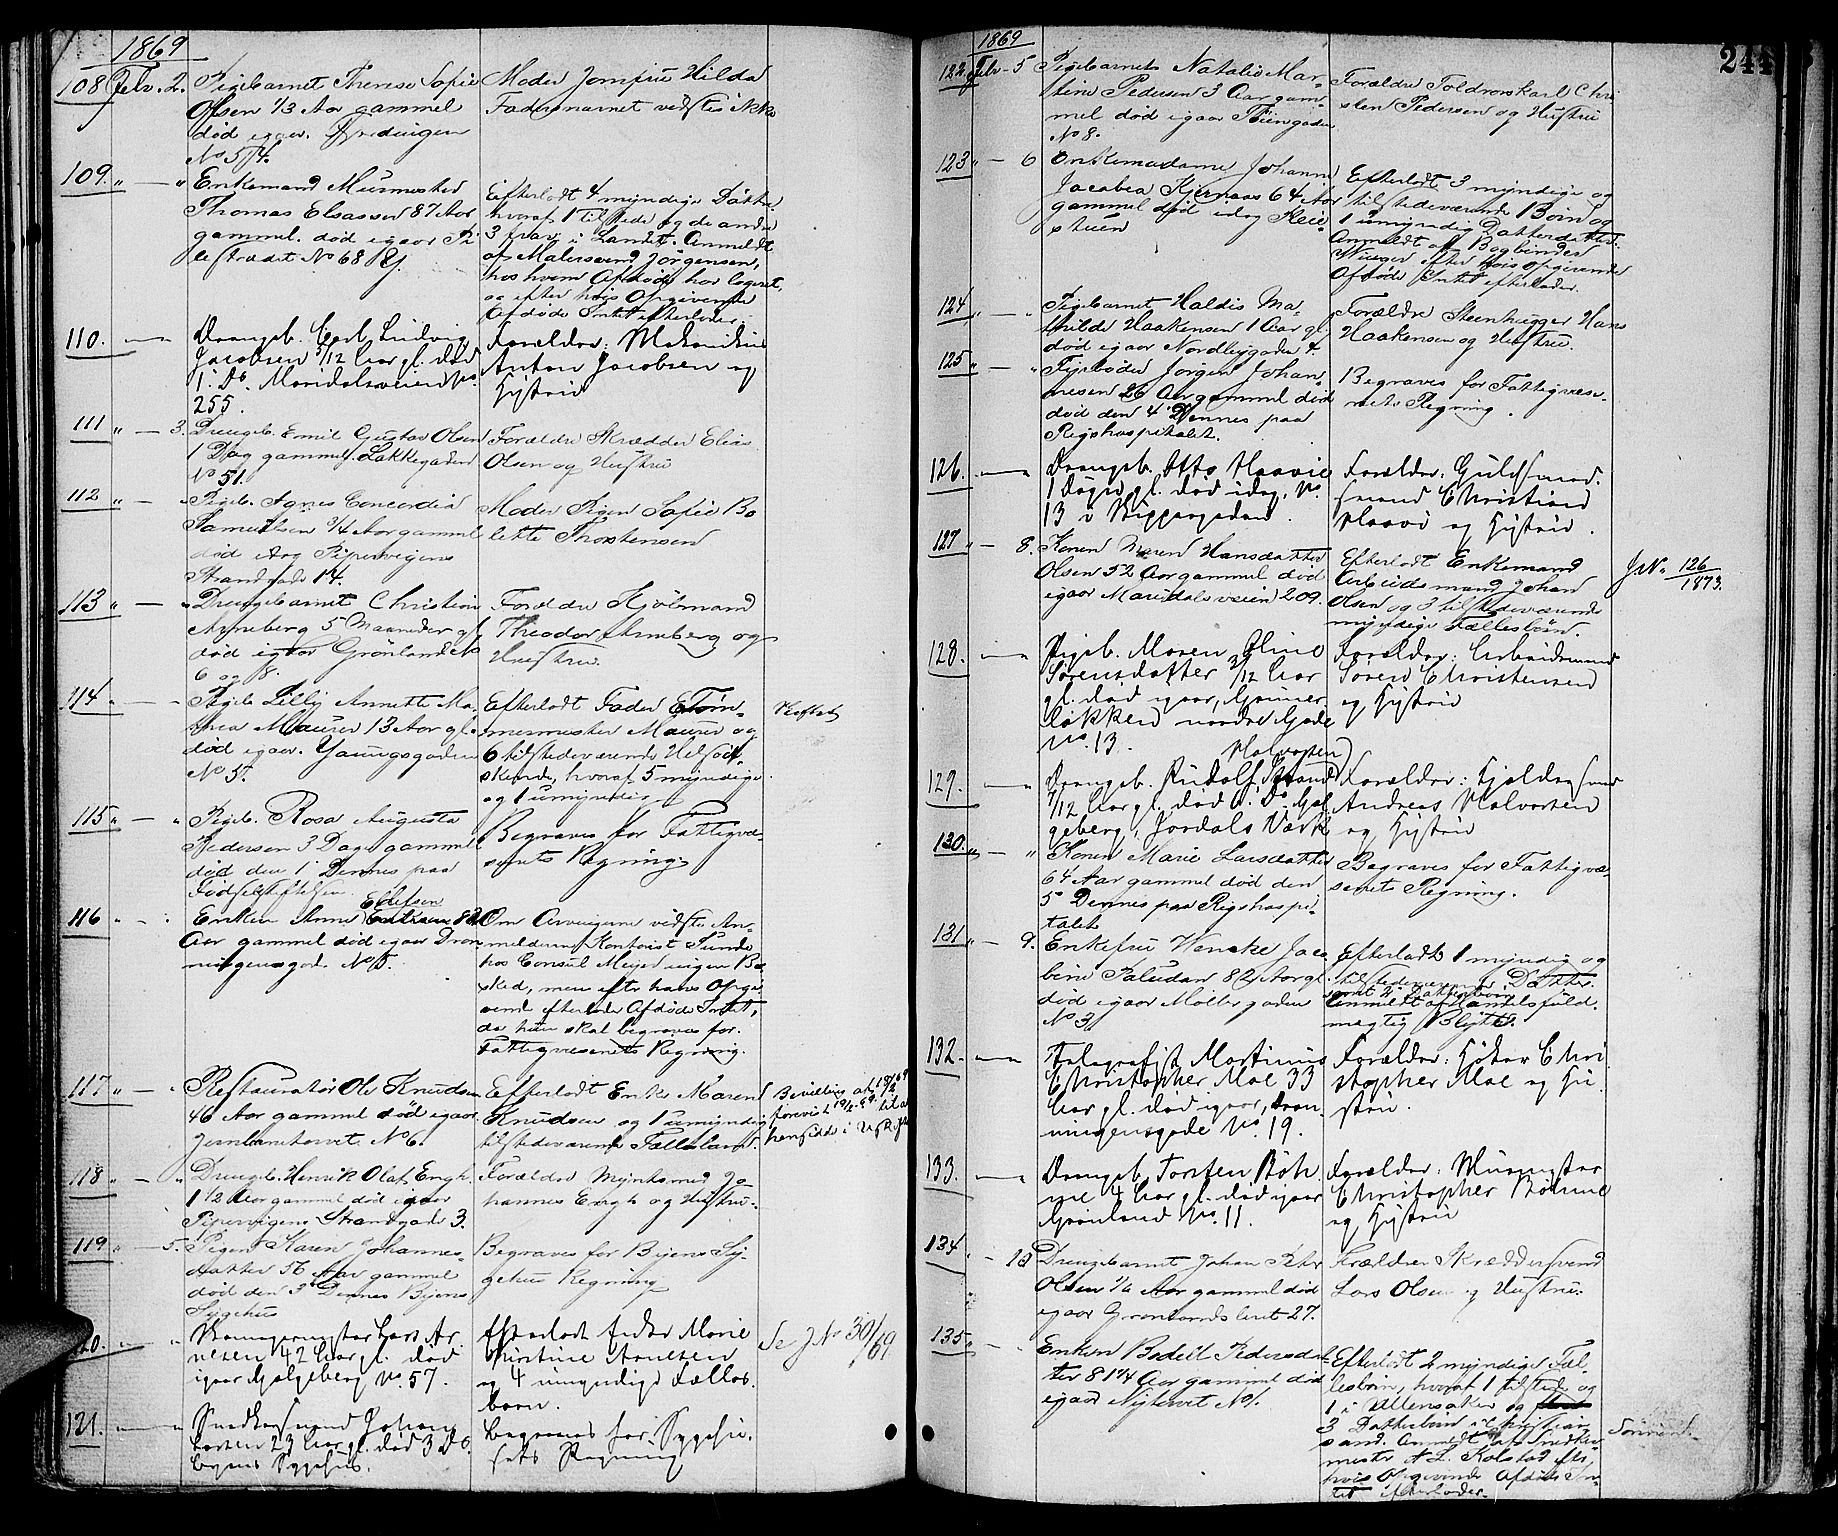 1869
108 Febr. 2. Pigebarnet Therese Sofie
Olsen 1/3 Aar gammel
død igaar. Fjerdingen
No 54.
Moder Jomfru Hilda
Fadernavnet vidstes ikke
109. " — " Enkemand Murmester
Thomas Elsasser 87 Aar
gammel. død igaar Pi
lestrædet No 68
Efterlodt 4 myndige Døttre
hvoraf 1 tilstede og de andre
3 her i Landet. Anmeldt
af Malersvend Jørgensen,
hos hvem Afdøde har logeret,
og efter hvis Opgivende
Afdøde Intet efterlader.
110. — Drengeb. Carl Ludvig
Jacobsen 5/12 Aar gl. død
1. ds. Maridalsveien No.
255.
Forældre: Mekanikus
Anton Jacobsen og
Hustru
111 " — 3. Drengeb. Emil Gustav Olsen
1 Dag gammel. Lakkegaden
No 51.
Forældre Skrædder Elias
Olsen og Hustru
112 " — " Pigeb. Agnes Concordia
Samuelsen 1/4 Aar gammel
død idag Pipervigens
Strandgade 14.
Moder Pigen Sofie Bo
lette Thorstensen
113 " — " Drengebarnet Christian
Arneberg 5 Maaneder gl.
død igaar Grønland No
6 og 8.
Forældre Hjulmand
Theodor Arneberg og
Hustru.
114 " — " Pigeb. Lilly Annette Ma
thea Maurer 13 Aar gl.
død igaar. Youngsgaden
No 5.
Efterlodt Fader Tøm-
mermester Maurer og
6 tilstedeværende Helsød-
skende, hvoraf 5 myndige
og 1 umyndig
Skiftet
115 " — " Pigeb. Rosa Augusta
Pedersen 3 Dage gammel
død den 1 Dennes paa
Fødselsstiftelsen.
Begraves for Fattigvæ-
senets Regning.
116 " — " Enken Anne Ellefsen 82
Aar gammel død igaar Dron
ningensgade No 5.
Om Arvingerne vidste An-
melderen, Kontorist Sunde
hos Consul Meijer ingen Be
sked, men efter hans Opgi-
vende efterlader Afdøde Intet,
da hun skal begraves for
Fattigvæsenets Regning.
117 " — " Restauratør Ole Knudsen
46 Aar gammel død igaar
Jernbanetorvet No 6.
Efterlodt Enke Maren
Knudsen og 1 umyndig
tilstedeværende Fællesbarn.
118 " — " Drengeb. Henrik Olaf Engh
1 1/2 Aar gammel død igaar
Pipervigens Strandgade 3.
Forældre Myntsmed Jo-
hannes Engh og Hustru.
119 " — 5. Pigen Karen Johannes-
datter 56 Aar gammel
død den 3 Dennes Byens
Sygehus
Begraves for Byens Sy
gehus Regning
120. " — " Lars Ar
nesen 42 Aar gl. død
igaar Galgeberg No. 57.
Efterlodt Enke Marie
Christine Arnesen
og 4 umyndige Fælles.
børn.
Se J No 30/69
121. — Snedkersvend Johan
Larsen 23 Aar gl. død 3 ds.
Byens Sygehus.
Begraves for Sygehu.
sets Regning
244
1869
122 Febr. 5 Pigebarnet Natalie Mar-
tine Pedersen 3 Aar gam-
mel død igaar Tøiengaden
No 8.
Forældre Toldroerskarl Chri
sten Pedersen og Hustru
123 " — 6 Enkemadame Johanne
Jacobea Kjernaas 64 Aar
gammel død idag Kleie-
stuen
Efterlodt 3 myndige og
tilstedeværende Børn og
1 umyndig Datterdatter.
Anmeldt af Bogbinder
efter hvis Opgivende
Afdøde Intet efterlader.
124 " — " Pigebarnet Haldis Ma-
thilde Haakensen 1 Aar gl.
død igaar Nordbygaden 4.
Forældre Steenhugger Hans
Haakensen og Hustru.
125 " — " Fyrbøder Jørgen Johan-
nesen 26 Aar gammel død
død den 4 Dennes paa
Rigshospitalet.
Begraves for Fattigvæse-
nets Regning.
126. — Drengeb. Otto Haavie
1 Døgn gl. død idag, No.
13 i Briggegaden.
Forældre: Guldsmed.
svend Christian
Haavi og Hustru.
127 " — 8. Konen Maren Hansdatter
Olsen 52 Aar gammel død
igaar Maridalsveien 209.
Efterlodt Enkemand
Arbeidsmand Johan
Olsen og 3 tilstedeværende
myndige Fællesbørn.
J. No. 126/1873.
128. — Pigeb. Maren Oline
Sørensdatter 3/12 Aar
gl. død igaar, Grüner
løkken nordre Gade
No. 13.
Forældre: Arbeidsmand
Søren Christensen
og Hustru
129. — Drengeb. Rudolf Strand (Halvorsen)
7/12 Aar gl. død d. Ds. Gal
geberg, Jordals Værk
Forældre: Gjeldersvend
Andreas Halvorsen
og Hustru
130. " — " Konen Marie Larsdatter
64 Aar gammel død den
5 Dennes paa Rigshospi-
talet
Begraves for Fattigvæ-
senets Regning.
131 " — 9. Enkefru Wencke Jaco
bine Paludan 82 Aar gl.
død igaar Møllergaden
No 3
Efterlodt 1 myndig og
tilstedeværende Datter
samt 2 Datterbørn
Anmeldt af Handelsfuld-
mægtig Blytt.
132. — Telegrafist Martinus
Christopher Moe 33
Aar gl. død igaar, Dron
ningensgade No. 19.
Forældre: Høker Chri
stopher Moe og Hu
stru.
133. — Drengeb. Torsten Böh
me 4 Aar gl. død igaar
Grønland No. 11.
Forældre: Murmester
Christopher Böhme
og Hustru
134. — 10 Drengebarnet Johan Peter
Olsen 1/6 Aar gammel død
igaar Grønlandsleret 27.
Forældre Skræddersvend
Lars Olsen og Hustru.
135. " — " Enken Bodell Pedersdat-
ter 81 1/4 Aar gammel død
igaar Nytorvet No 1.
Efterlodt 2 myndige Fæl-
lesbørn, hvoraf 1 tilstede og
1 i Ullensaker og
3 Datterbørn i Christian
sand. Anmeldt af Snedker-
mester A. L. Kolstad efter
hvis Opgivende Afdøde In-
tet efterlader.